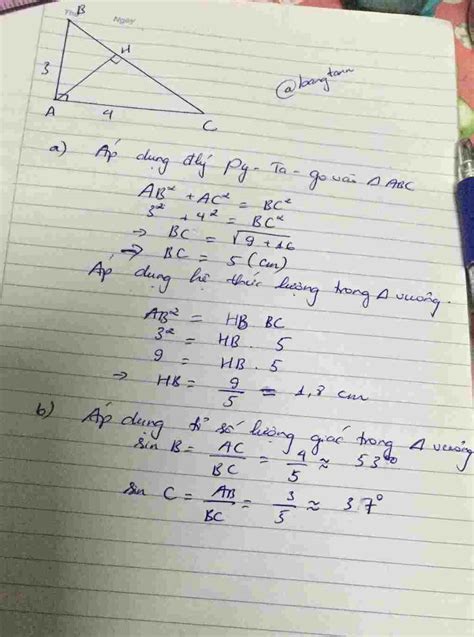 Thứ Ngày
B
H
3
A
4
C
@bangtann
a) Áp dụng đlý Py-Ta-go vào Δ ABC
AB² + AC² = BC²
3² + 4² = BC²
→ BC = √9 + 16
→ BC = 5 (cm)
Áp dụng hệ thức lượng trong Δ vuông.
AB² = HB . BC
3² = HB . 5
9 = HB . 5
→ HB = 9/5 = 1,8 cm
b) Áp dụng tỉ số lượng giác trong Δ vuông
sin B = AC/BC = 4/5 ≈ 53°
sin C = AB/BC = 3/5 ≈ 37°